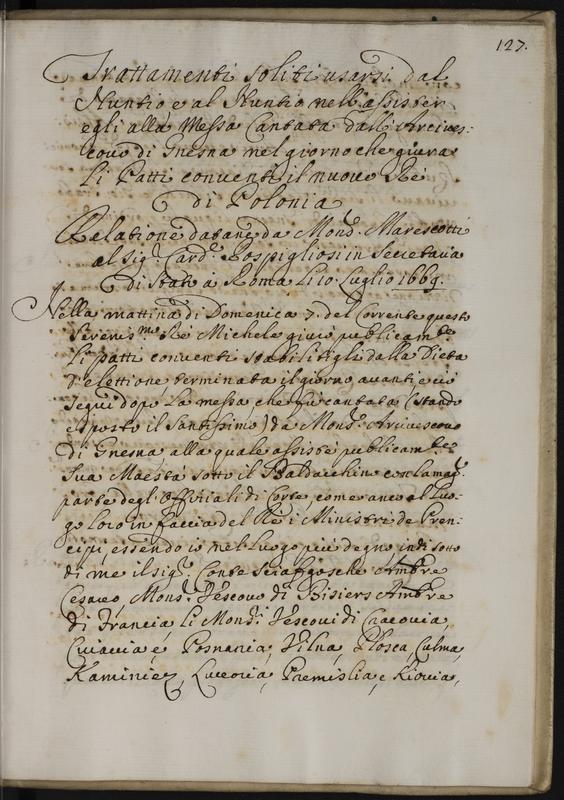 127.
Trattamenti soliti usarsi dal
Nuntio e al Nuntio nell'assister
egli alla Messa Cantata dall'Arcives:
covo di Gnesna nel giorno che giura
li Patti conventi il nuovo Rè
di Polonia
Relatione datane da Mons.r Marescotti
al Sig.r Card.l Rospigliosi in Secretaria
di Stato à Roma li 10. Luglio 1669.
Nella mattina di Domenica 7. del Corrente questo
Sereniss.mo Rè Michele giurò publicam.te
li patti conventi stabilitigli dalla Dieta
d'elettione terminata il giorno avanti e ciò
seguì dopo la messa, che fù cantata (stando
esposto il Santissimo) da Mons.r Arcivescovo
di Gnesna, alla quale assistè publicam.te
Sua Maestà sotto il Baldacchino con la mag.r
parte degli Offitiali di Corte, come anco al luo-
go loro in faccia del Rè i Ministri de Pren-
cipi, essendo io nel luogo più degno, indi sotto
di me il sig.r Conte Sciaffgosche Ambre
Cesareo, Mons.r Vescovo di Bisiers Ambre
di Francia, li Mons.ri Vescovi di Cracovia,
Cuiavia e Posnania, Vilna, Plosca, Culma,
Kaminiez, Luceoria, Premislia, e Kiovia,